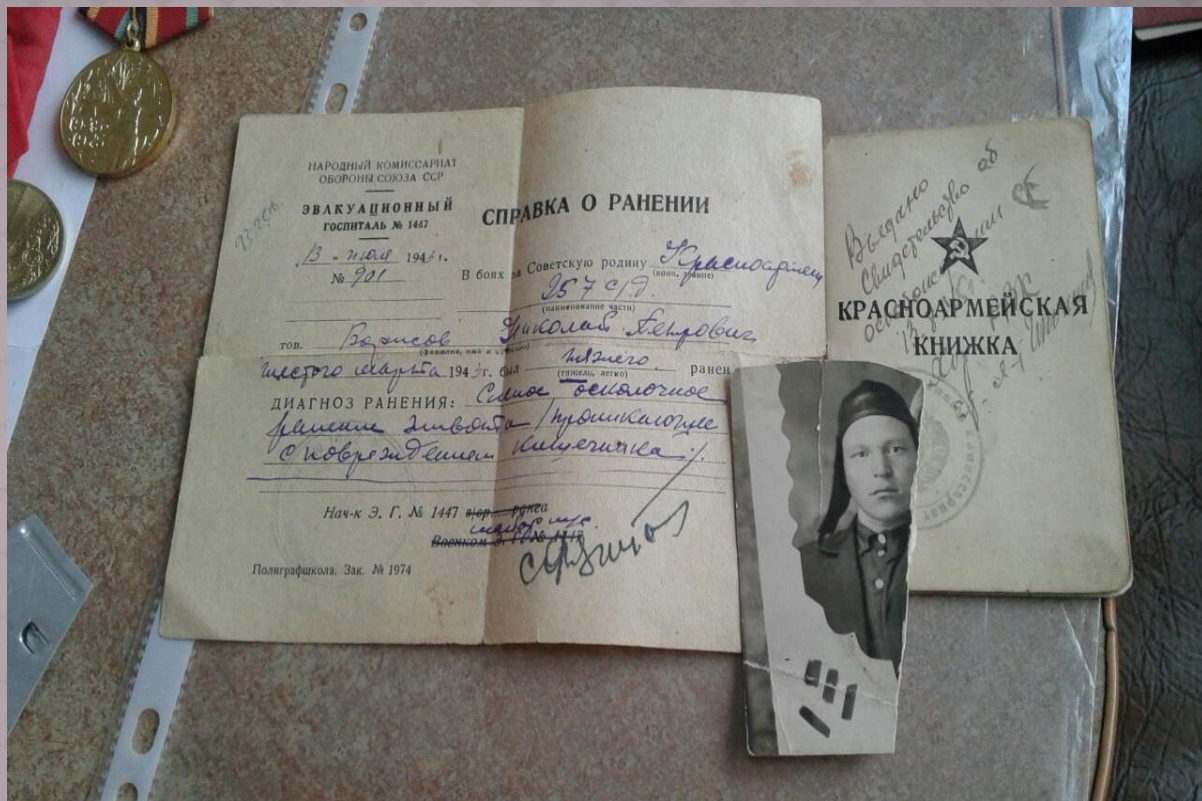 НАРОДНЫЙ КОМИССАРИАТ
ОБОРОНЫ СОЮЗА ССР
ЭВАКУАЦИОННЫЙ
ГОСПИТАЛЬ № 1447
13 июля 1943 г.
№ 901
СПРАВКА О РАНЕНИИ
В боях за Советскую родину Красноармеец
(воин. звание)
257 с/д.
(наименование части)
тов. Борисов Николай Петрович
(фамилия, имя и
шестого марта 1943 г. был тяжело ранен
(тяжело, легко)
ДИАГНОЗ РАНЕНИЯ: Слепое осколочное
ранение живота /проникающее
с повреждением кишечника/.
Нач-к Э. Г. № 1447
майор м/с.
Военком
Полиграфшкола. Зак. № 1974
Выдано
Свидетельство об
КРАСНОАРМЕЙСКАЯ
КНИЖКА
1945